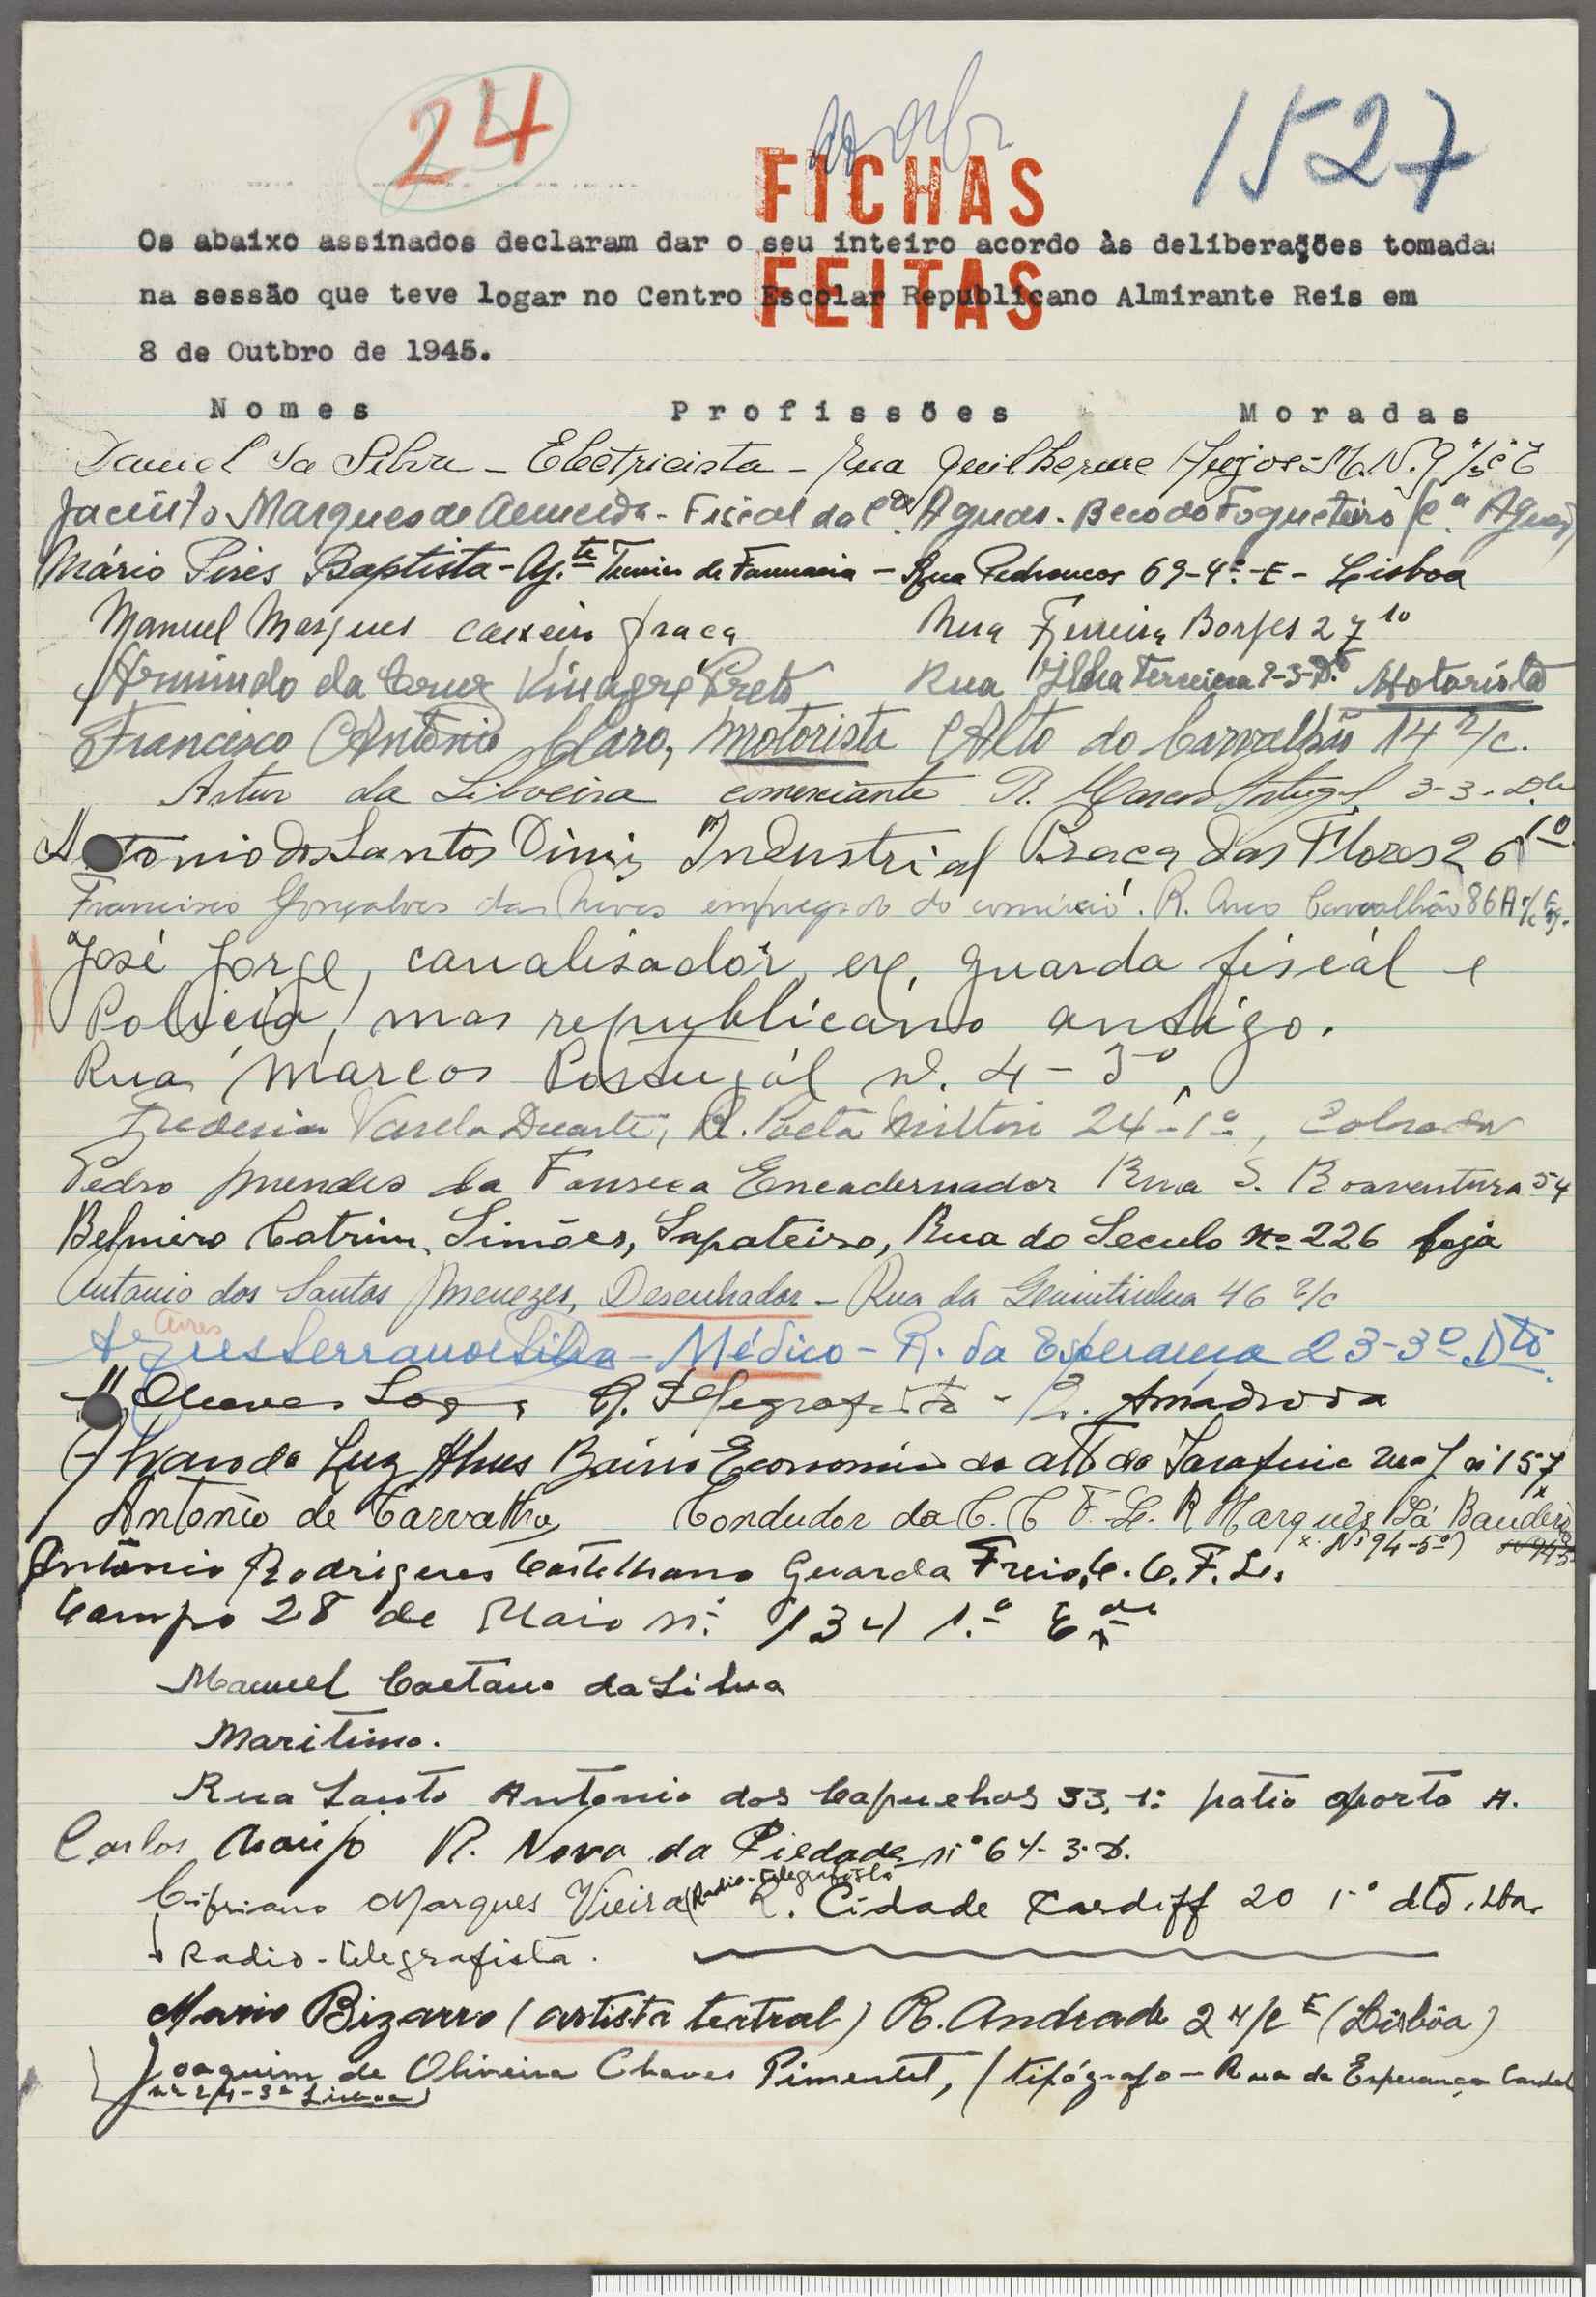 24
1527
FICHAS
FEITAS
Os abaixo assinados declaram dar o seu inteiro acordo às deliberações tomada
na sessão que teve logar no Centro Escolar Republicano Almirante Reis em
8 de Outbro de 1945.
Nomes Profissões Moradas
Daniel da Silva - Electricista - Rua Guilherme
Jacinto Marques de Almeida - Fiscal da Cª Aguas - Beco do Fogueteiro Cª Aguas
Mário Pires Baptista - Aj.te de Farmacia - Rua Pedrouços 69-4º-E - Lisboa
Manuel Marques caixeiro praça Rua Ferreira Borges 27 1º
Armindo da Cruz Vinagre Preto Rua Ilha Terceira Motorista
Francisco António Claro, Motorista Alto do Carvalhão 14 r/c.
Artur da Silveira comerciante R. Marcos Portugal 3-3-Dto
António dos Santos Diniz Industrial Praça das Flores 26 1º
Francisco Gonçalves das Neves empregado do comércio. R. Arco Carvalhão 86A r/c E
José Jorge, canalisador, ex. guarda fiscál e
Policia, mas republicano antigo.
Rua Marcos Portugál nº. 4-3º
Varela Duarte, R. Poeta Milton 24-1º, Cobrador
Pedro Mendes da Fonseca Encadernador Rua S. Boaventura 54
Belmiro Catrim Simões, Sapateiro, Rua do Seculo nº 226 loja
Antonio dos Santos Menezes, Desenhador - Rua da Quintinha 46 r/c
Aires
Ayres Serrano e Silva - Médico - R. da Esperança 23-3º Dto
Telegrafista - Amadora
da Luz Alves Bairro Economico do alto da Serafina rua 7 nº 157
António de Carvalho Condudor da C. C F. L. R Marquês Sá Bandeira
(x. Nº 94-5º)
António Rodrigues Castelhano Guarda Freio, C. C. F. L.
Campo 28 de Maio nº. 134 1.º
Manuel Caetano da Silva
Maritimo.
Rua Santo Antonio dos Capuchos 33, 1º patio aporta A.
Carlos Araújo R. Nova da Piedade nº 64-3-D.
Cipriano Marques Vieira (Radio-telegrafista R. Cidade Cardiff 20 1º dtº. Lxa.
Radio-telegrafista.
Mario Bizarro (artista teatral) R. Andrade 2 r/c E (Lisbôa)
Joaquim de Oliveira Chaves Pimentel, (tipógrafo - Rua da Esperança Cardal
nº 24-3º Lisboa)